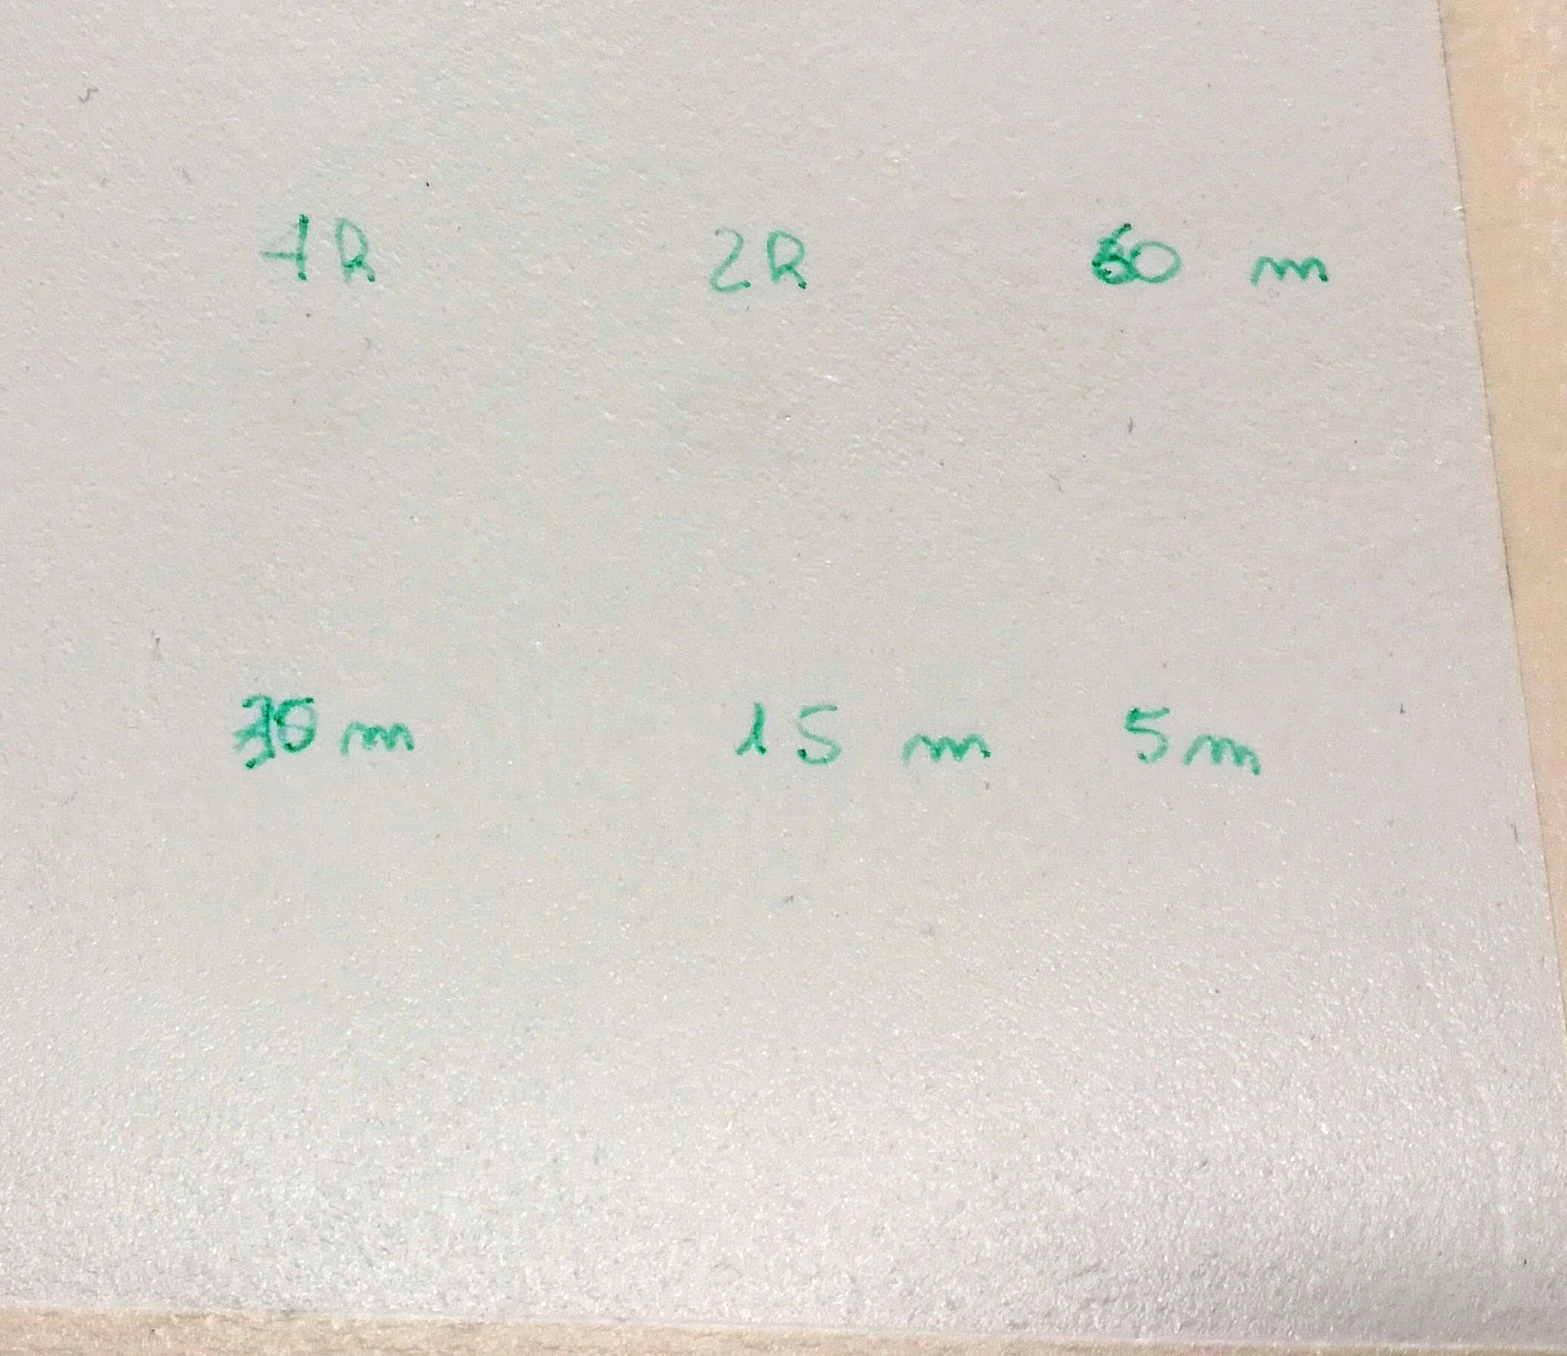 4h 2h 60 m
30 m 15 m 5m